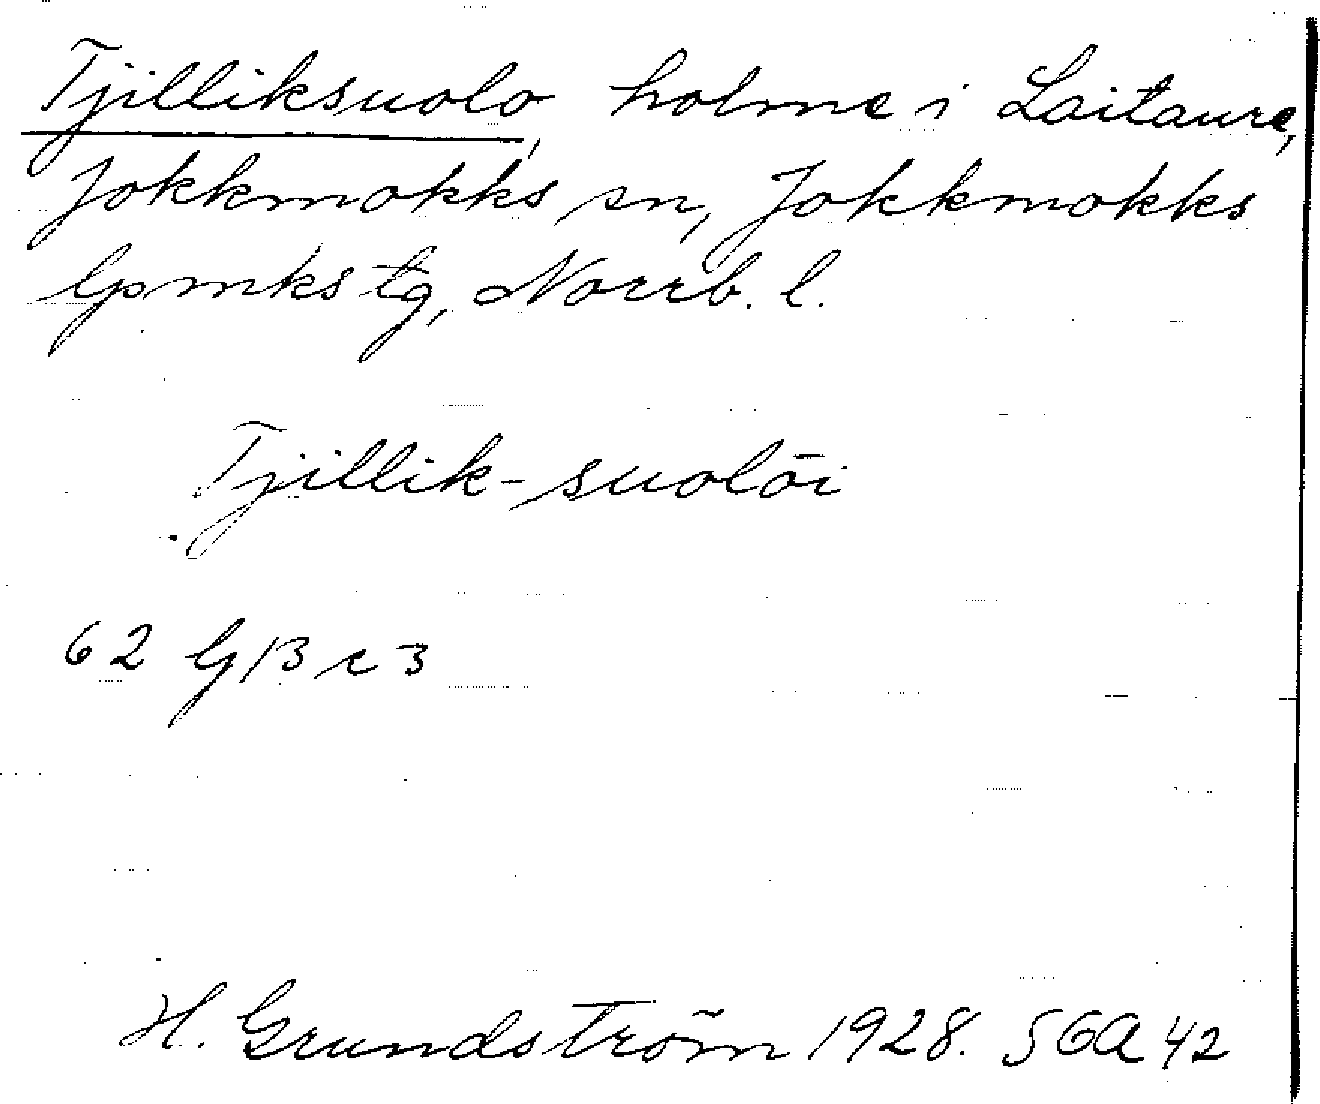 Tjilliksuolo, holme i Laitaure,
Jokkmokks sn, Jokkmokks
lpmks tg, Norrb. l.
Tjillik-suolōi
62 G/3 c 3
H. Grundström 1928. SGA 42